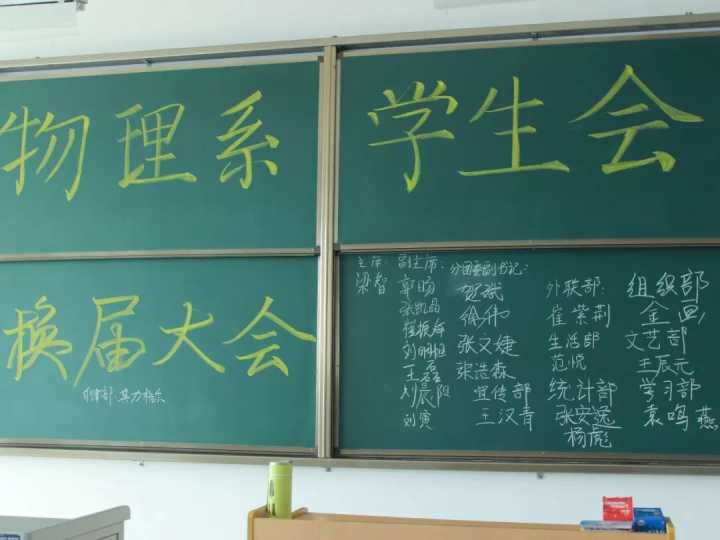 物理系
学生会
换届大会
主席: 副主席: 分团委副书记:
梁智 郭旸 贺斌
外联部: 组织部
张凯晶 佩伟 崔紫荆 金画
崔振海 张又婕 生活部 文艺部
刘明旭 宋浩森 范悦 王辰元
王磊 宣传部 统计部 学习部
刘晨阳 王汉青 张安逸 袁鸣燕
刘寅 杨彪
体育部